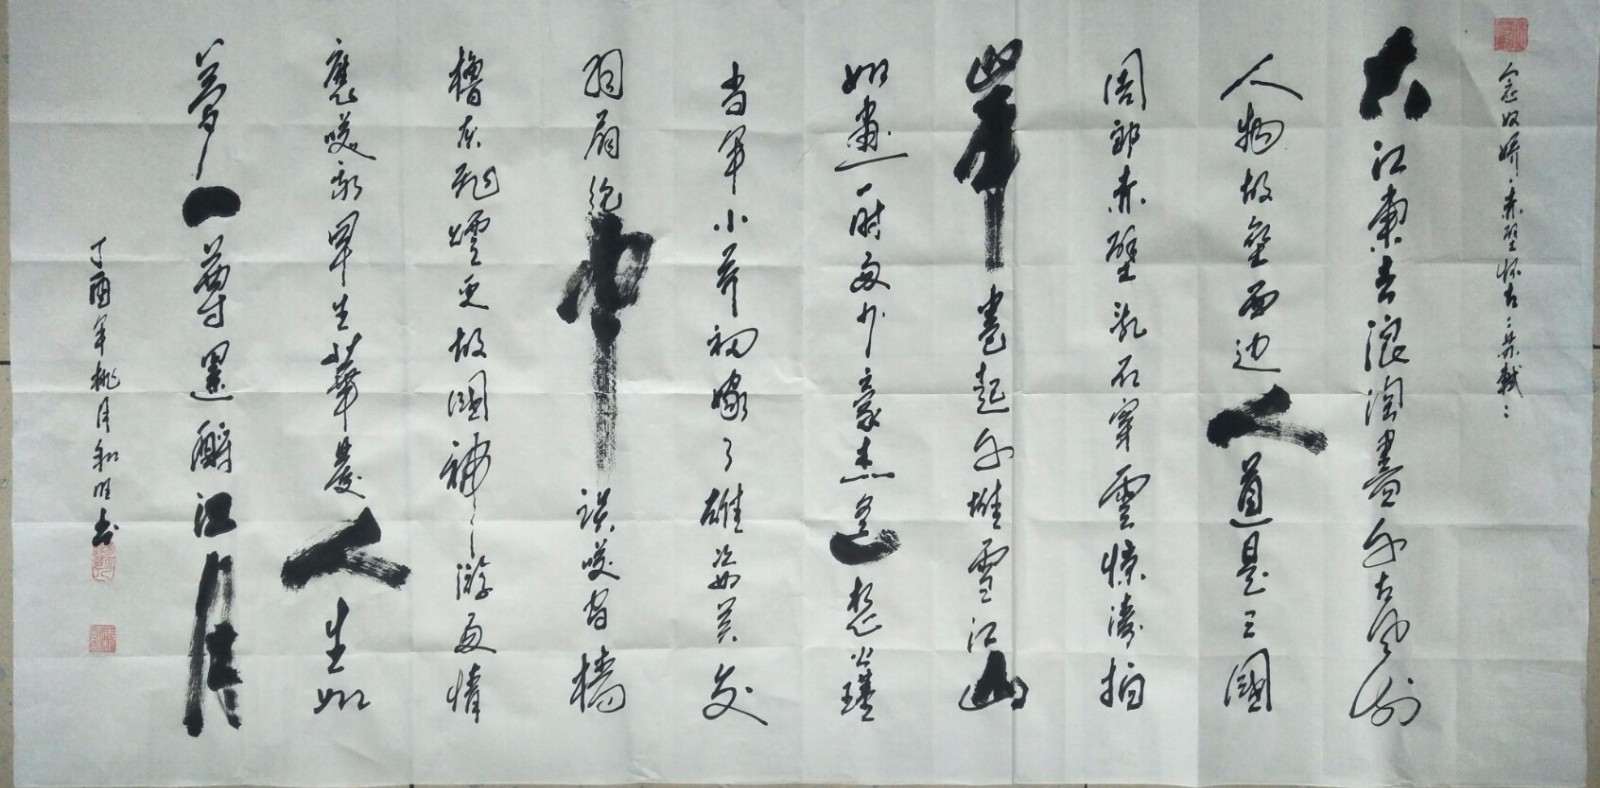 念奴娇:赤壁怀古:
大江東去浪淘盡千古風流
人物故壘西边人道是三國
周郎赤壁乱石穿雲惊涛拍
岸卷起千堆雪江山
如畫一時多少豪杰遥想公瑾
当年小乔初嫁了雄姿英发
羽扇纶巾谈笑间檣
櫓灰飛煙灭故國神游多情
應笑我早生華发人生如
夢一尊還酹江月
丁酉年桃月和